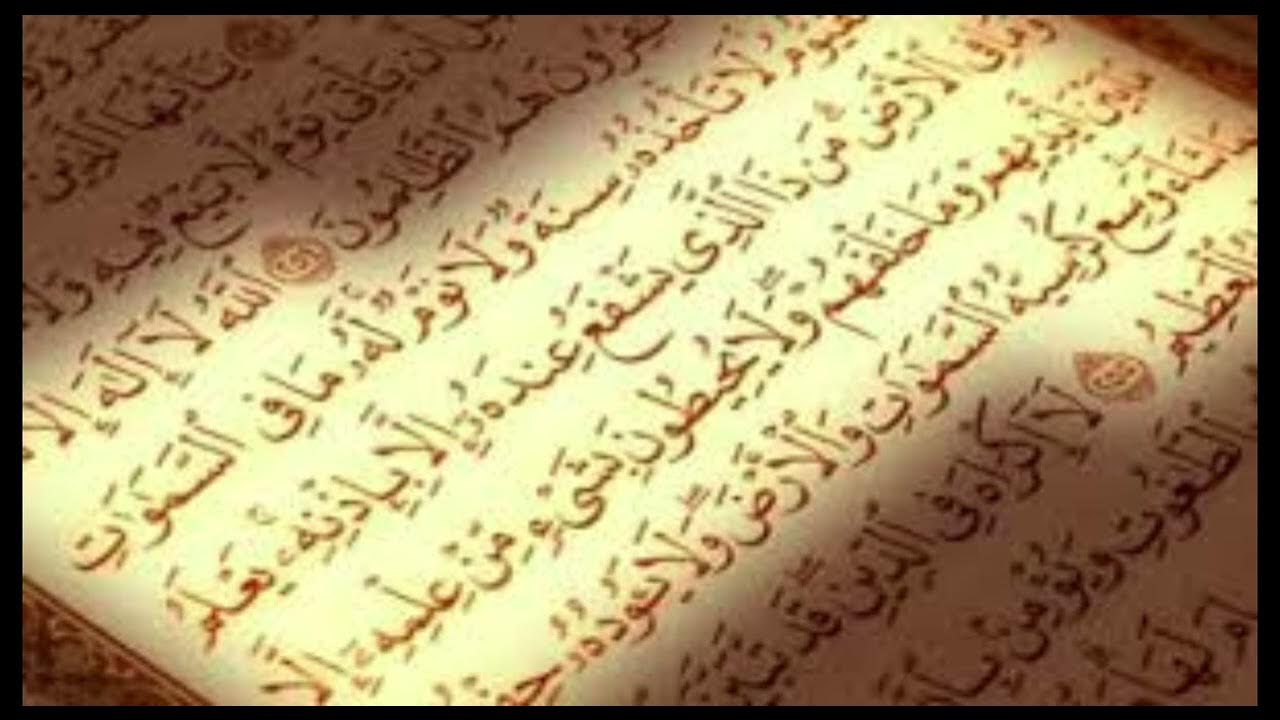 يَٰٓأَيُّهَا ٱلَّذِينَ
أَن يَأْتِىَ يَوْمٌ لَّا بَيْعٌ فِيهِ وَلَا
هُمُ ٱلظَّٰلِمُونَ ٢٥٤ ٱللَّهُ لَآ إِلَٰهَ إِلَّا
لَا تَأْخُذُهُۥ سِنَةٌ وَلَا نَوْمٌ لَّهُۥ مَا فِى ٱلسَّمَٰوَٰتِ
وَمَا فِى ٱلْأَرْضِ مَن ذَا ٱلَّذِى يَشْفَعُ عِندَهُۥٓ إِلَّا بِإِذْنِهِۦ يَعْلَمُ
مَا بَيْنَ أَيْدِيهِمْ وَمَا خَلْفَهُمْ وَلَا يُحِيطُونَ بِشَىْءٍ مِّنْ عِلْمِهِۦٓ إِلَّا
بِمَا شَآءَ وَسِعَ كُرْسِيُّهُ ٱلسَّمَٰوَٰتِ وَٱلْأَرْضَ وَلَا يَـُٔودُهُۥ
ٱلْعَظِيمُ ٢٥٥ لَآ إِكْرَاهَ فِى ٱلدِّينِ قَد تَّبَيَّنَ
بِٱلطَّٰغُوتِ وَيُؤْمِنۢ بِٱللَّهِ
لَهَا